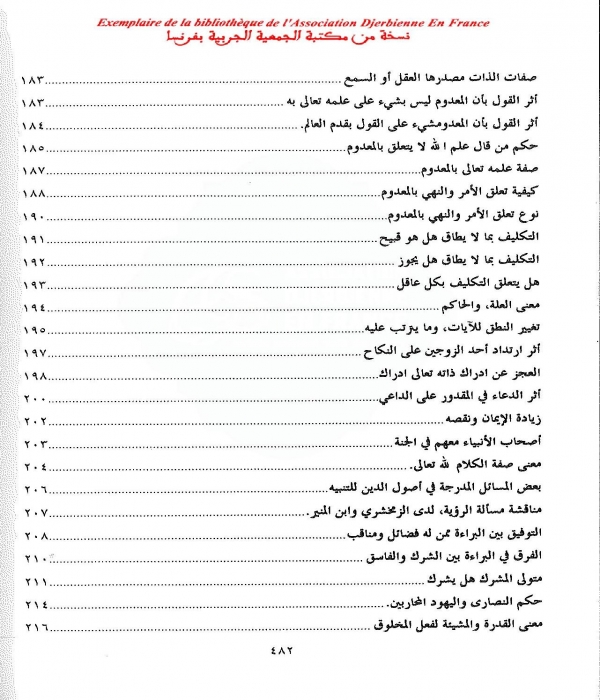 Exemplaire de la bibliothèque de l'Association Djerbienne En France
نسخة من مكتبة الجمعية الجربية بفرنسا
صفات الذات مصدرها العقل أو السمع ١٨٣
أثر القول بأن المعدوم ليس بشيء على علمه تعالى به ١٨٣
أثر القول بأن المعدومشيء على القول بقدم العالم. ١٨٤
حكم من قال علم الله لا يتعلق بالمعدوم ١٨٥
صفة علمه تعالى بالمعدوم ١٨٧
كيفية تعلق الأمر والنهي بالمعدوم ١٨٨
نوع تعلق الأمر والنهي بالمعدوم ١٩٠
التكليف بما لا يطاق هل هو قبيح ١٩١
التكليف بما لا يطاق هل يجوز ١٩٢
هل يتعلق التكليف بكل عاقل ١٩٣
معنى العلة، والحاكم ١٩٤
تغيير النطق للآيات، وما يترتب عليه ١٩٥
أثر ارتداد أحد الزوجين على النكاح ١٩٧
العجز عن ادراك ذاته تعالى ادراك ١٩٨
أثر الدعاء في المقدور على الداعي ٢٠٠
زيادة الإيمان ونقصه ٢٠٢
أصحاب الأنبياء معهم في الجنة ٢٠٣
معنى صفة الكلام لله تعالى. ٢٠٤
بعض المسائل المدرجة في أصول الدين للتنبيه ٢٠٦
مناقشة مسألة الرؤية، لدى الزمخشري وابن المنير. ٢٠٧
التوفيق بين البراءة ممن له فضائل ومناقب ٢٠٨
الفرق في البراءة بين الشرك والفاسق ٢١٠
متولى المشرك هل يشرك ٢١١
حكم النصارى واليهود المحاربين. ٢١٤
معنى القدرة والمشيئة لفعل المخلوق ٢١٦
٤٨٢